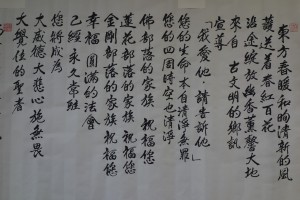 東方春暖和晌清新的風
護送着春紅百花
沿途綻放幽香薰薰大地
來自 古文明的鄉訊
宣尊
「我愛他，請告訴他」
您的生命本自清淨無罪
您的四周時空也清淨
佛部落的家族 祝福您
蓮花部落的家族 祝福您
金剛部落的家族 祝福您
幸福圓滿的法會
已經永久常駐
您將成為
大威德大悲心施無畏
大覺性的聖者